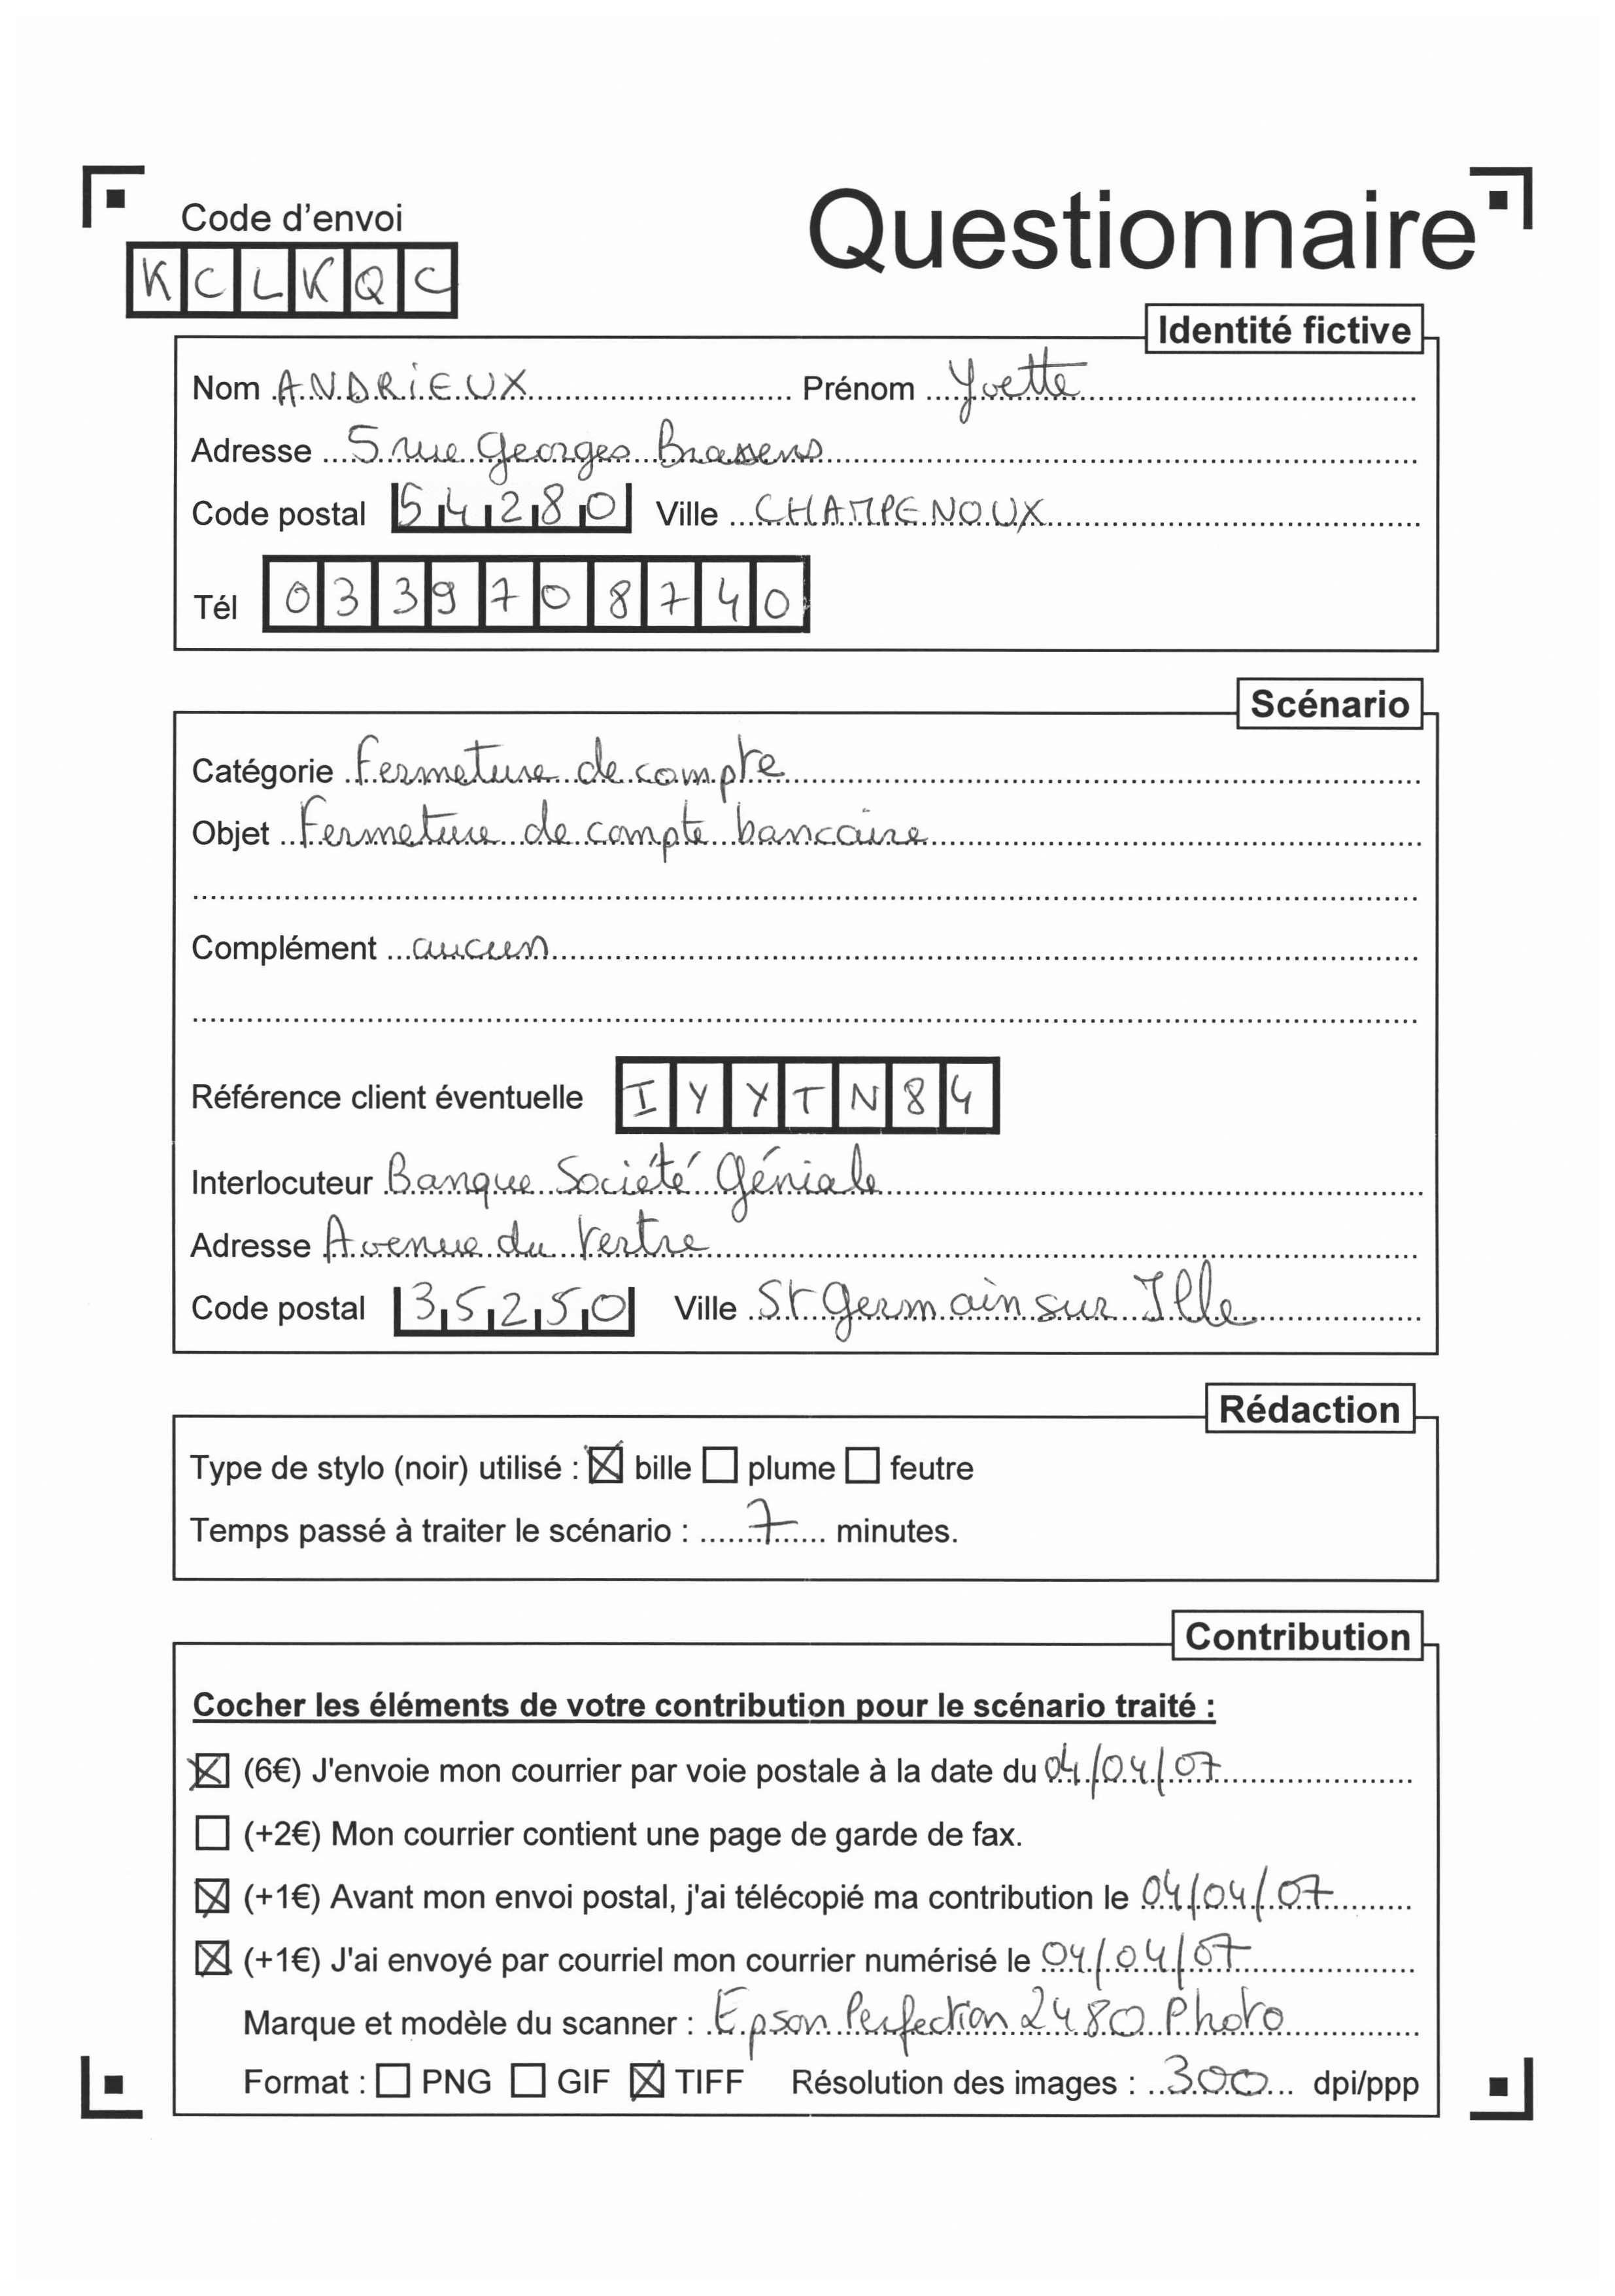 Code d'envoi
Questionnaire
KCLKQC
Identité fictive
Nom ANDRiEUX Prénom Yvette
Adresse 5 rue Georges Brassens
Code postal 54280 Ville CHAMPENOUX
Tél 0339708740
Scénario
Catégorie Fermeture de compte
Objet Fermeture de compte bancaire
Complément aucun
Référence client éventuelle IYYTN84
Interlocuteur Banque Société Géniale
Adresse Avenue du Vertre
Code postal 35250 Ville St Germain sur Ille
Rédaction
Type de stylo (noir) utilisé : ☒ bille ☐ plume ☐ feutre
Temps passé à traiter le scénario : 7 minutes.
Contribution
Cocher les éléments de votre contribution pour le scénario traité :
☒ (6€) J'envoie mon courrier par voie postale à la date du 04/04/07
☐ (+2€) Mon courrier contient une page de garde de fax.
☒ (+1€) Avant mon envoi postal, j'ai télécopié ma contribution le 04/04/07
☒ (+1€) J'ai envoyé par courriel mon courrier numérisé le 04/04/07
Marque et modèle du scanner : Epson Perfection 2480 Photo
Format : ☐ PNG ☐ GIF ☒ TIFF Résolution des images : 300 dpi/ppp